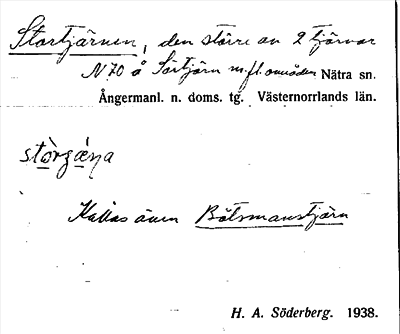 Stortjärnen, den större av 2 tjärnar
N 70 å Sörtjärn m. fl. områden Nätra sn.
Ångermanl. n. doms. tg. Västernorrlands län.
Kallas även Båtsmanstjärn
H. A. Söderberg. 1938.